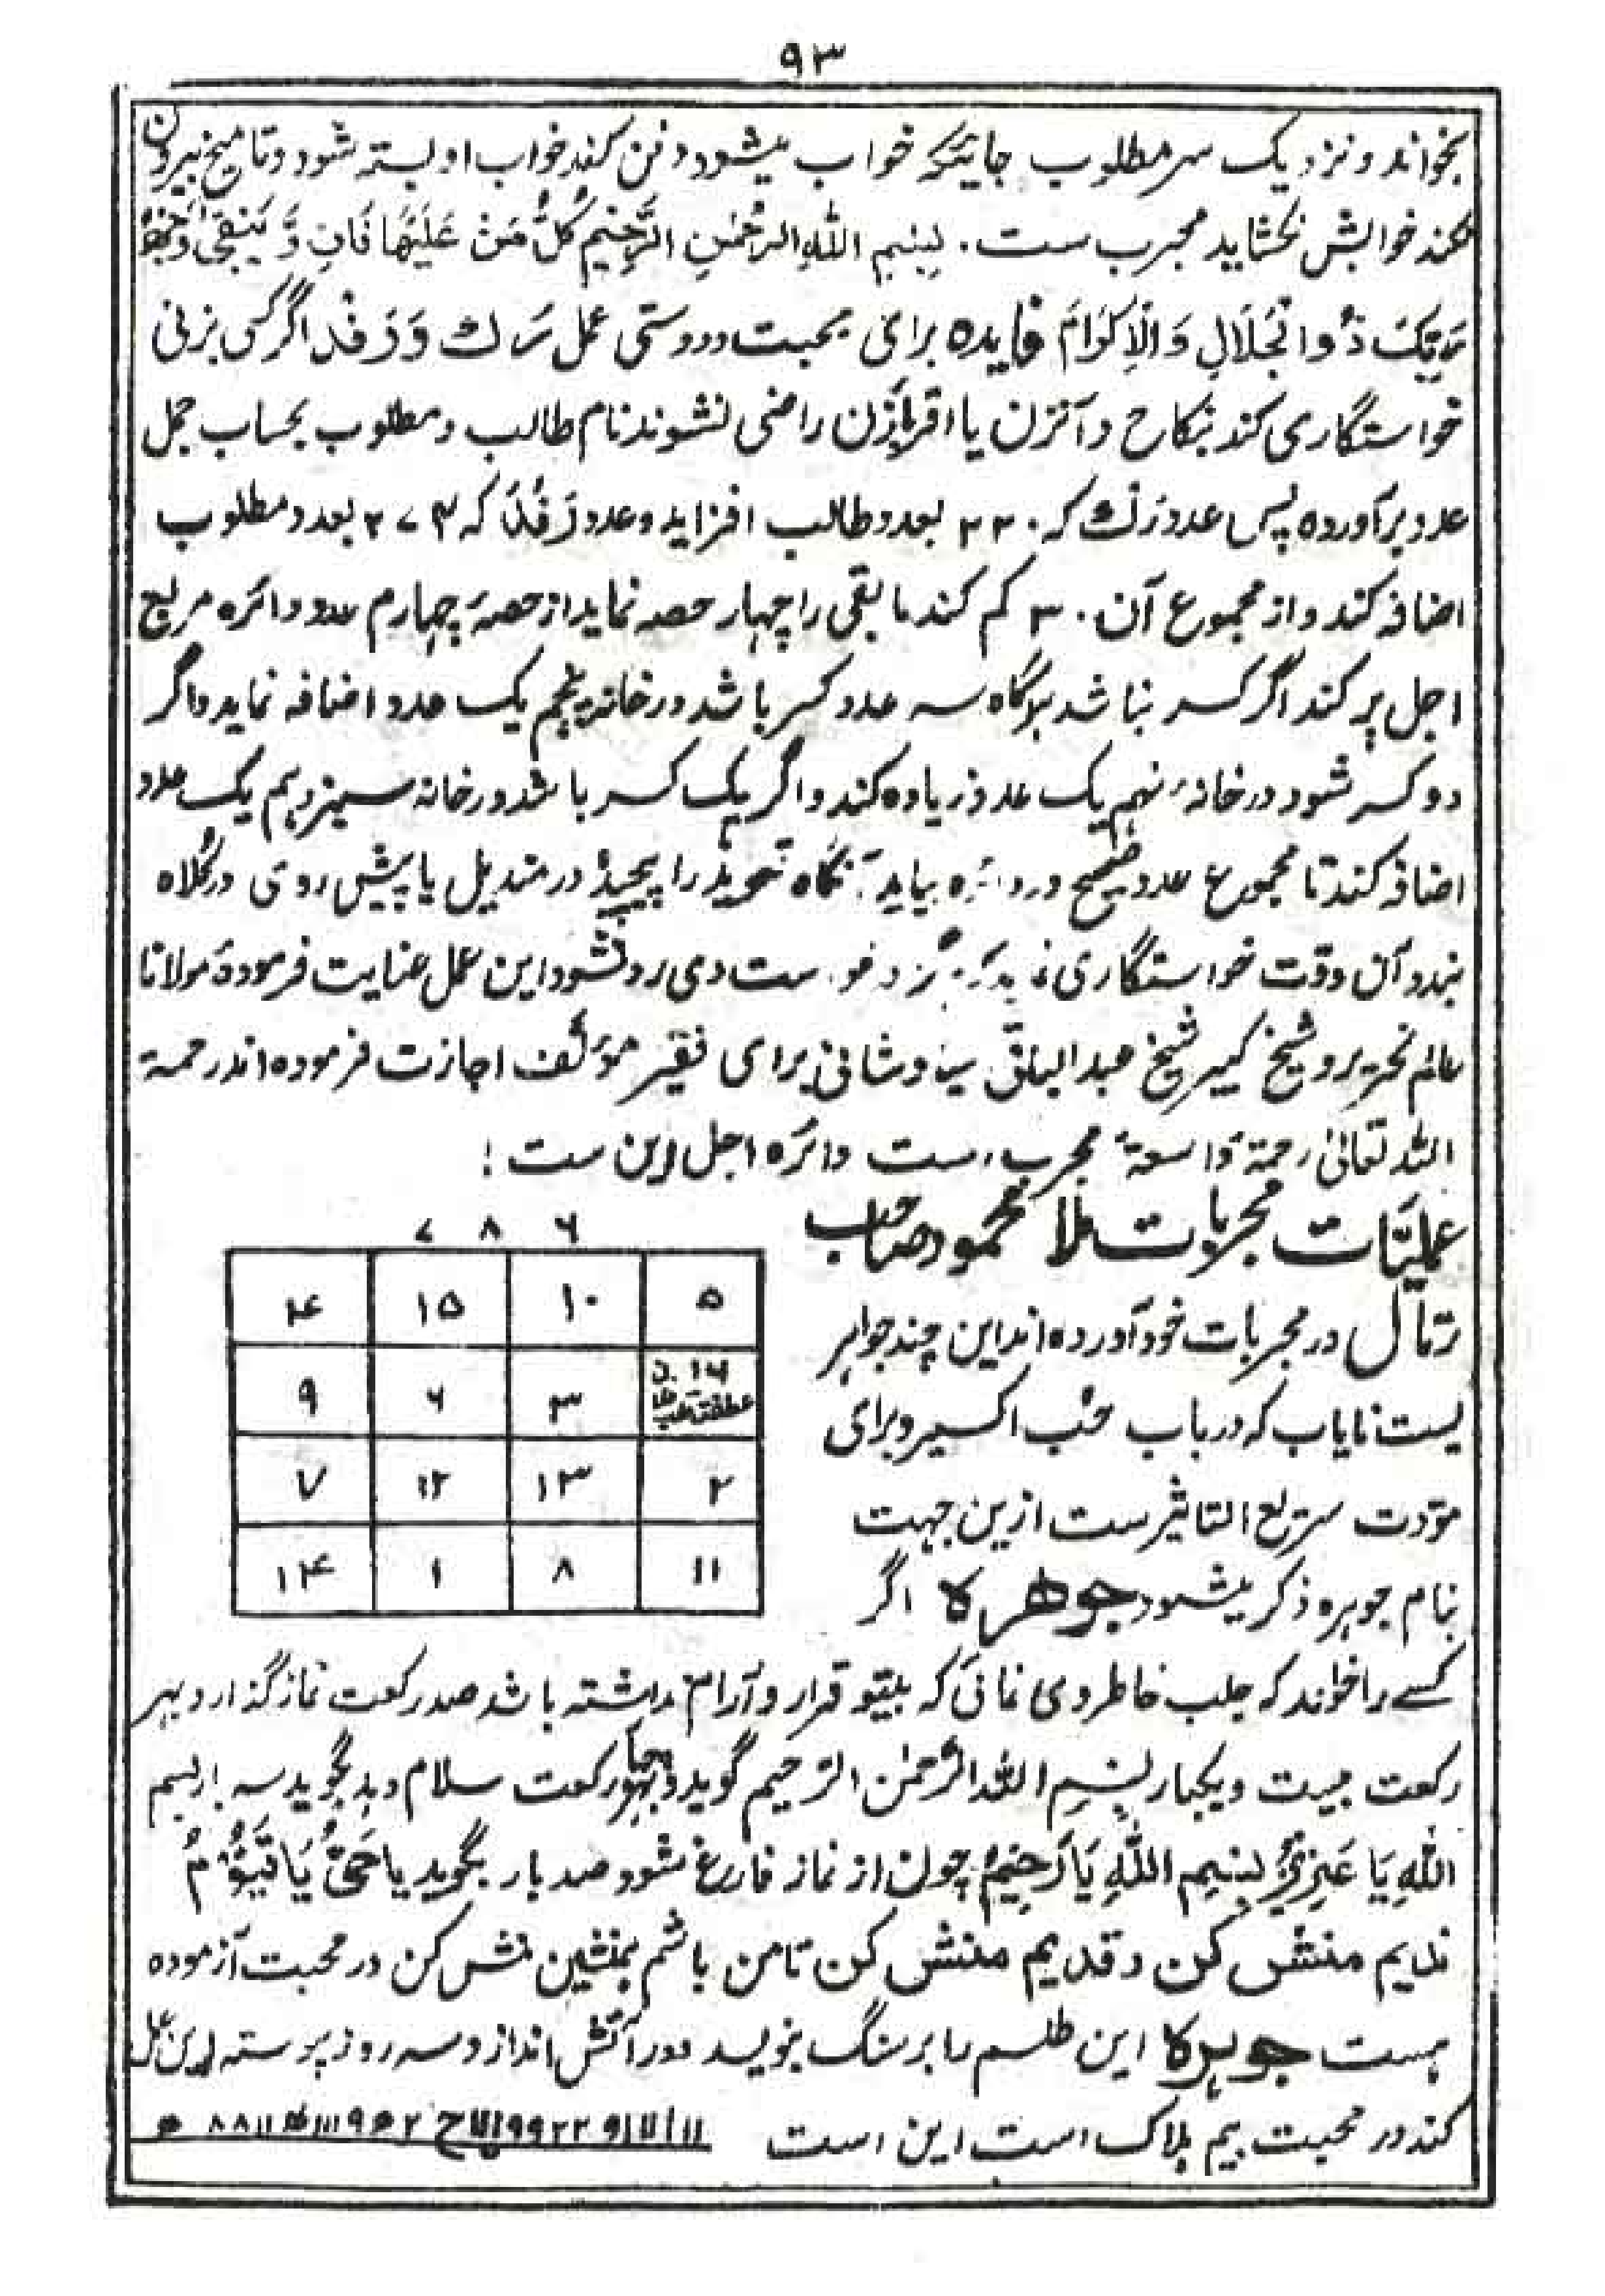 ۹۳
بخواند و نزدیک سر مطلوب جائیکه خواب میشود دفن کند خواب او بسته شود و تا میخ بیرون
نکند خوابش نکشاید مجرب ست۔ بِسْمِ اللهِ الرَّحْمٰنِ الرَّحِيْمِ كُلُّ مَنْ عَلَيْهَا فَانٍ وَّ يَبْقىٰ وَجْهُ
رَبِّكَ ذُوالْجَلَالِ وَالْاِكْرَامِ فایده برای محبت و دوستی عمل رَک وَ رَفَد اگر کسی بزنی
خواستگاری کند بنکاح و آنزن یا اقربازن راضی نشوند نام طالب و مطلوب بحساب جمل
عدد برآورده پس عدد رَک که ۲۲۰ بعدد طالب افزاید و عدد رَفَد که ۲۷۴ بعدد مطلوب
اضافه کند و از مجموع آن ۳۰ کم کند مابقی را چهار حصه نماید از حصهٔ چهارم عدد دائره مربع
اجل پر کند اگر کسر نباشد هرگاه سه عدد کسر باشد در خانه پنجم یک عدد اضافه نماید و اگر
دو کسر شود در خانهٔ نهم یک عدد زیاده کند و اگر یک کسر باشد در خانه سیزدهم یک عدد
اضافه کند تا مجموع عدد صحیح در دائره بیاید آنگاه تعویذ را پیچیده در مندیل یا پیش روی در کلاه
بندد آن وقت خواستگاری نماید هرگز درخواست وی رد نشود این عمل عنایت فرمودهٔ مولانا
عالم نحریر و شیخ کبیر شیخ عبد الباقی برای فقیر مؤلف اجازت فرموده اند رحمة
الله تعالیٰ رحمةً واسعةً مجرب ست دائره اجل این ست :
عملیّات مجربات ملا محمود صاحب
رمّال در مجربات خود آورده اند این چند جواهر
یست نایاب که در باب حُب اکسیر و برای
مودت سریع التاثیر ست ازین جهت
بنام جوهره ذکر میشود جوهره اگر
۷ ۸ ۶
۴ ۱۵ ۱۰ ۵
۹ ۶ ۳ ۱۶
۷ ۱۲ ۱۳ ۲
۱۴ ۱ ۸ ۱۱
کسے را خواند که جلب خاطر وی نمائی که بیتو قرار و آرام نداشته باشد صد رکعت نماز گذارد بهر
رکعت بیست و یکبار بِسْمِ الله الرَّحمٰن الرَّحیم گوید و بهر چهار رکعت سلام دهد بگوید سه بار بسم
اللهِ یَا عَزِیْزُ بِسْمِ اللهِ یَا رَحِیْمُ چون از نماز فارغ شود صد بار بگوید یا حَیُّ یَا قَیُّوْمُ
ندیم منش کن و قدیم منش کن تا من باشم همنشین منش کن در محبت آزموده
هست جوهره این طلسم را بر سنگ بنویسد و در آتش اندازد سه روز پیوسته این عمل
کند در محبت بیم هلاک است این است